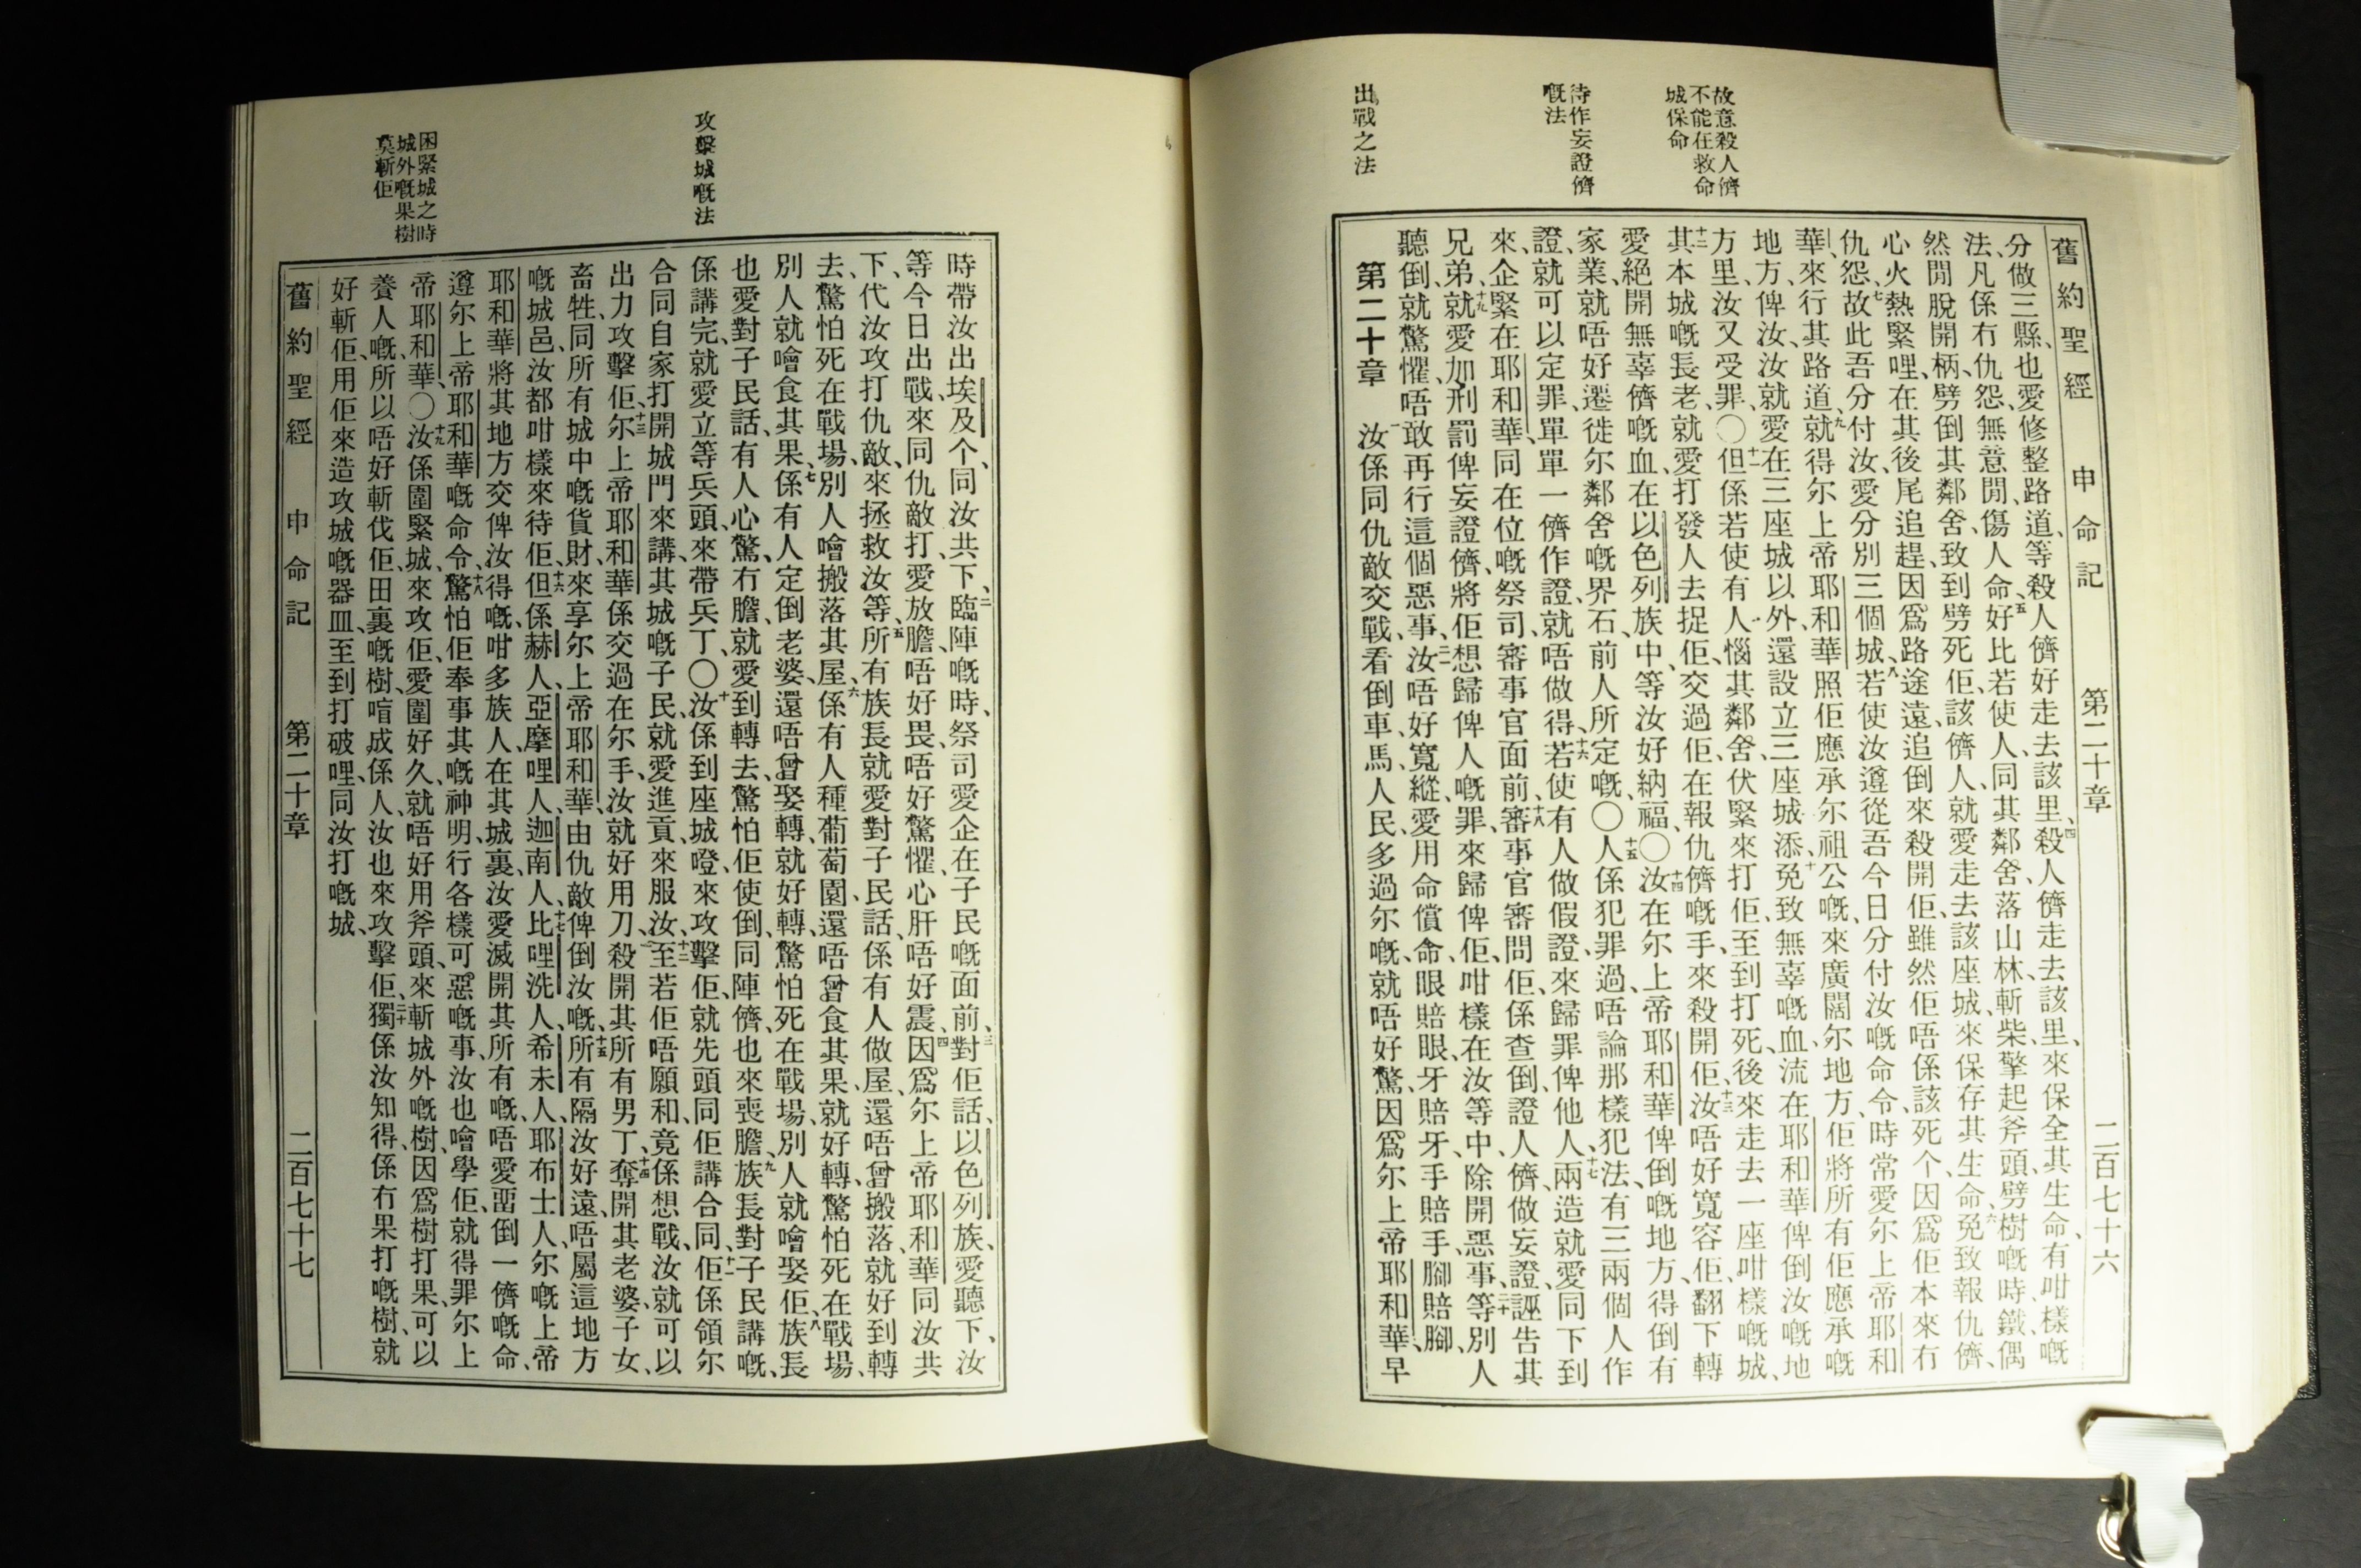 故意殺人儕
不能在救命
城保命
待作妄證儕
嘅法
出戰之法
舊約聖經 申命記 第二十章 二百七十六
分做三縣、也愛修整路道、等殺人儕好走去該里、四殺人儕走去該里、來保全其生命、有咁樣嘅
法、凡係冇仇怨、無意閒傷人命、五好比若使人、同其鄰舍、落山林、斬柴、擎起斧頭、劈樹嘅時、鐵偶
然閒脫開柄、劈倒其鄰舍、致到劈死佢、該儕人、就愛走去該座城、來保存其生命、六免致報仇儕、
心火熱緊哩、在其後尾追趕、因爲路途遠、追倒來殺開佢、雖然佢唔係該死个、因爲佢本來冇
仇怨、七故此吾分付汝、愛分別三個城、八若使汝遵從吾今日分付汝嘅命令、時常愛尔上帝耶和
華、來行其路道、九就得尔上帝耶和華照佢應承尔祖公嘅、來廣闊尔地方、佢將所有佢應承嘅
地方、俾汝、汝就愛在三座城以外、還設立三座城添、十免致無辜嘅血、流在耶和華俾倒汝嘅地
方里、汝又受罪、〇十一但係若使有人惱其鄰舍、伏緊來打佢、至到打死、後來走去一座咁樣嘅城、
十二其本城嘅長老、就愛打發人去捉佢、交過佢、在報仇儕嘅手、來殺開佢、十三汝唔好寬容佢、翻下轉
愛絕開無辜儕嘅血、在以色列族中、等汝好納福、〇十四汝在尔上帝耶和華俾倒嘅地方、得倒有
家業、就唔好遷徙尔鄰舍嘅界石、前人所定嘅、〇十五人係犯罪過、唔論那樣犯法、有三兩個人作
證、就可以定罪、單單一儕作證、就唔做得、十六若使有人做假證、來歸罪俾他人、十七兩造就愛同下到
來、企緊在耶和華同在位嘅祭司、審事官面前、十八審事官審問佢、係查倒、證人儕做妄證、誣告其
兄弟、十九就愛加刑罰俾妄證儕、將佢想歸俾人嘅罪、來歸俾佢、咁樣在汝等中、除開惡事、二十等別人
聽倒、就驚懼、唔敢再行這個惡事、二一汝唔好寬縱、愛用命償命、眼賠眼、牙賠牙、手賠手、腳賠腳、
第二十章 一汝係同仇敵交戰、看倒車馬、人民、多過尔嘅、就唔好驚、因爲尔上帝耶和華、早
攻擊城嘅法
困緊城之時
城外嘅果樹
莫斬佢
時帶汝出埃及个、同汝共下、二臨陣嘅時、祭司愛企在子民嘅面前、三對佢話、以色列族、愛聽下、汝
等今日出戰、來同仇敵打、愛放膽、唔好畏、唔好驚懼、心肝唔好震、四因爲尔上帝耶和華同汝共
下、代汝攻打仇敵、來拯救汝等、五所有族長就愛對子民話、係有人做屋、還唔曾搬落、就好到轉
去、驚怕死在戰場、別人噲搬落其屋、六係有人種葡萄園、還唔曾食其果、就好轉、驚怕死在戰場、
別人就噲食其果、七係有人定倒老婆、還唔曾娶轉、就好轉、驚怕死在戰場、別人就噲娶佢、八族長
也愛對子民話、有人心驚、冇膽、就愛到轉去、驚怕佢使倒同陣儕、也來喪膽、九族長對子民講嘅、
係講完、就愛立等兵頭、來帶兵丁、〇十汝係到座城嶝、來攻擊佢、就先頭同佢講合同、十一佢係領尔
合同、自家打開城門、來講、其城嘅子民、就愛進貢、來服汝、十二至若佢唔願和、竟係想戰、汝就可以
出力攻擊佢、十三尔上帝耶和華係交過在尔手、汝就好用刀、殺開其所有男丁、十四奪開其老婆、子女、
畜牲、同所有城中嘅貨財、來享尔上帝耶和華由仇敵俾倒汝嘅、十五所有隔汝好遠、唔屬這地方
嘅城邑、汝都咁樣來待佢、十六但係赫人、亞摩哩人、迦南人、十七比哩洗人、希未人、耶布士人、尔嘅上帝
耶和華將其地方交俾汝得嘅、咁多族人、在其城裏、汝愛滅開其所有嘅、唔愛畱倒一儕嘅命、
遵尔上帝耶和華嘅命令、十八驚怕佢奉事其嘅神明、行各樣可惡嘅事、汝也噲學佢、就得罪尔上
帝耶和華、〇十九汝係圍緊城、來攻佢、愛圍好久、就唔好用斧頭、來斬城外嘅樹、因爲樹打果、可以
養人嘅、所以唔好斬伐佢、田裏嘅樹、喑成係人、汝也來攻擊佢、二十獨係汝知得、係有果打嘅樹、就
好斬佢、用佢來造攻城嘅器皿、至到打破哩、同汝打嘅城、
舊約聖經 申命記 第二十章 二百七十七